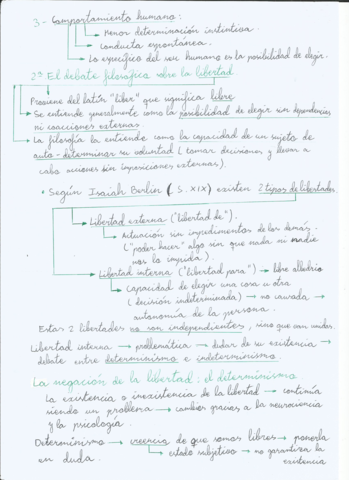 3- Comportamiento humano:
→ Menor determinación instintiva.
→ Conducta espontánea.
→ Lo específico del ser humano es la posibilidad de elegir.
2º El debate filosófico sobre la libertad
→ Proviene del latín "liber" que significa libre
→ Se entiende generalmente como la posibilidad de elegir sin dependencias
ni coacciones externas.
→ La filosofía la entiende como la capacidad de un sujeto de
auto-determinar su voluntad (tomar decisiones y llevar a
cabo acciones sin imposiciones externas).
• Según Isaiah Berlin (S. XIX) existen 2 tipos de libertades
→ Libertad externa ("libertad de").
→ Actuación sin impedimentos de los demás.
("poder hacer" algo sin que nada ni nadie
nos lo impida).
→ Libertad interna ("libertad para") → libre albedrío
→ Capacidad de elegir una cosa u otra
(decisión indeterminada) → no causada →
autonomía de la persona.
Estas 2 libertades no son independientes, sino que van unidas.
Libertad interna → problemática → dudar de su existencia →
debate entre determinismo e indeterminismo.
La negación de la libertad: el determinismo
La existencia o inexistencia de la libertad → continúa
siendo un problema → cambios graves a la neurociencia
y la psicología.
Determinismo → creencia de que somos libres → ponerla
en duda. → estado subjetivo → no garantiza la
existencia